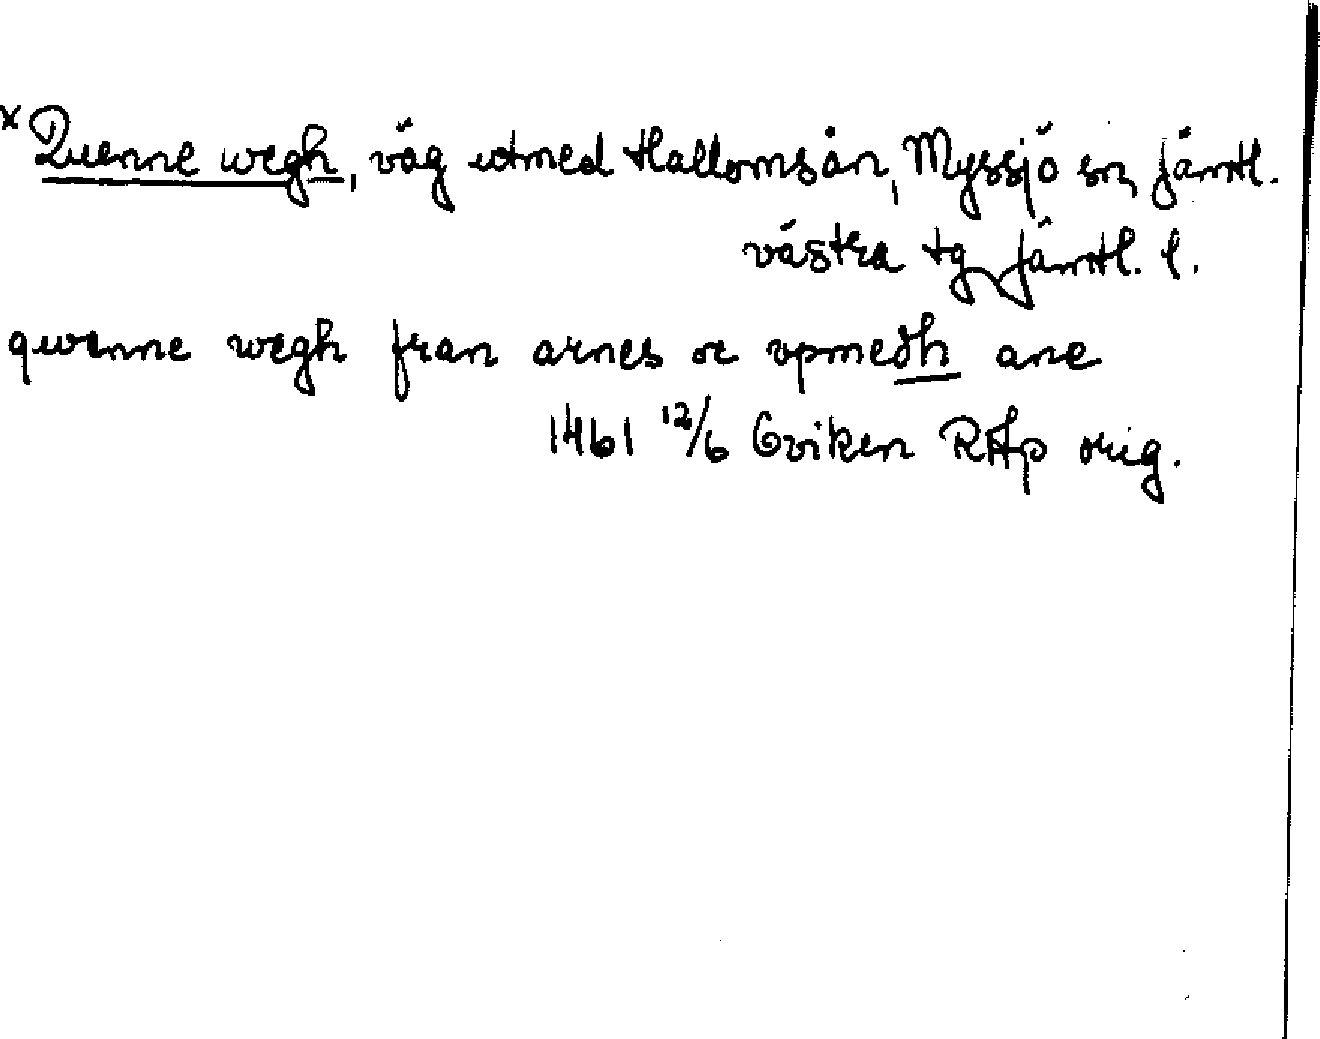 x Quenne wegh, väg utmed Hallomsån, Myssjö sn, Jämtl.
västra tg, Jämtl. l.
quenne wegh fran arnes oc vpmedh ane
1461 12/6 Oviken RAp orig.